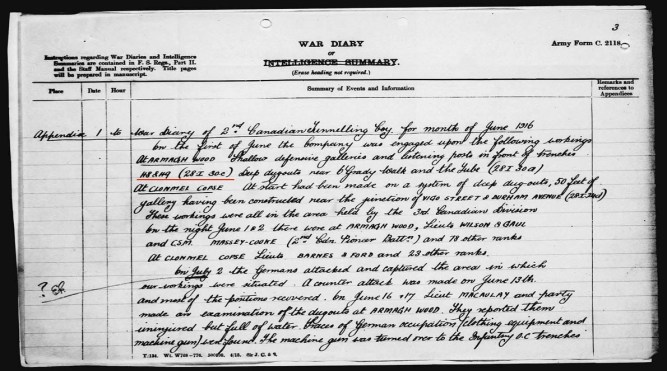 3
WAR DIARY
or
INTELLIGENCE SUMMARY.
(Erase heading not required.)
Army Form C. 2118.
Instructions regarding War Diaries and Intelligence
Summaries are contained in F. S. Regs., Part II.
and the Staff Manual respectively. Title pages
will be prepared in manuscript.
Place Date Hour Summary of Events and Information Remarks and references to Appendices
Appendix 1 to War Diary of 2nd Canadian Tunnelling Coy for month of June 1916
On the first of June the Company was engaged upon the following workings
At ARMAGH WOOD Shallow defensive galleries and listening posts in front of trenches
48 & 49 (28 I 30c) deep dugouts near O'Grady Walk and the Tube (28 I 30a)
At CLONMEL COPSE A start had been made on a system of deep dug-outs, 50 feet of
gallery having been constructed near the junction of VIGO STREET & DURHAM AVENUE (28 I 30d)
These workings were all in the area held by the 3rd Canadian Division
On the night June 1 & 2 there were at ARMAGH WOOD, Lieuts WILSON & GAUL
and C.S.M. MASSEY-COOKE (2nd Cdn. Pioneer Battn) and 78 other ranks
At CLONMEL COPSE Lieuts BARNES & FORD and 23 other ranks.
On July 2 the Germans attacked and captured the area in which
our workings were situated. A counter attack was made on June 13th
and most of the positions recovered. On June 16 & 17 Lieut MACAULAY and party
made an examination of the dugouts at ARMAGH WOOD. They reported them
uninjured but full of water. Traces of German occupation (clothing equipment and
machine gun) were found. The machine gun was turned over to the Infantry O.C. trenches
?
T.134. Wt. W708—776. 500000. 4/15. Sir J. C. & S.